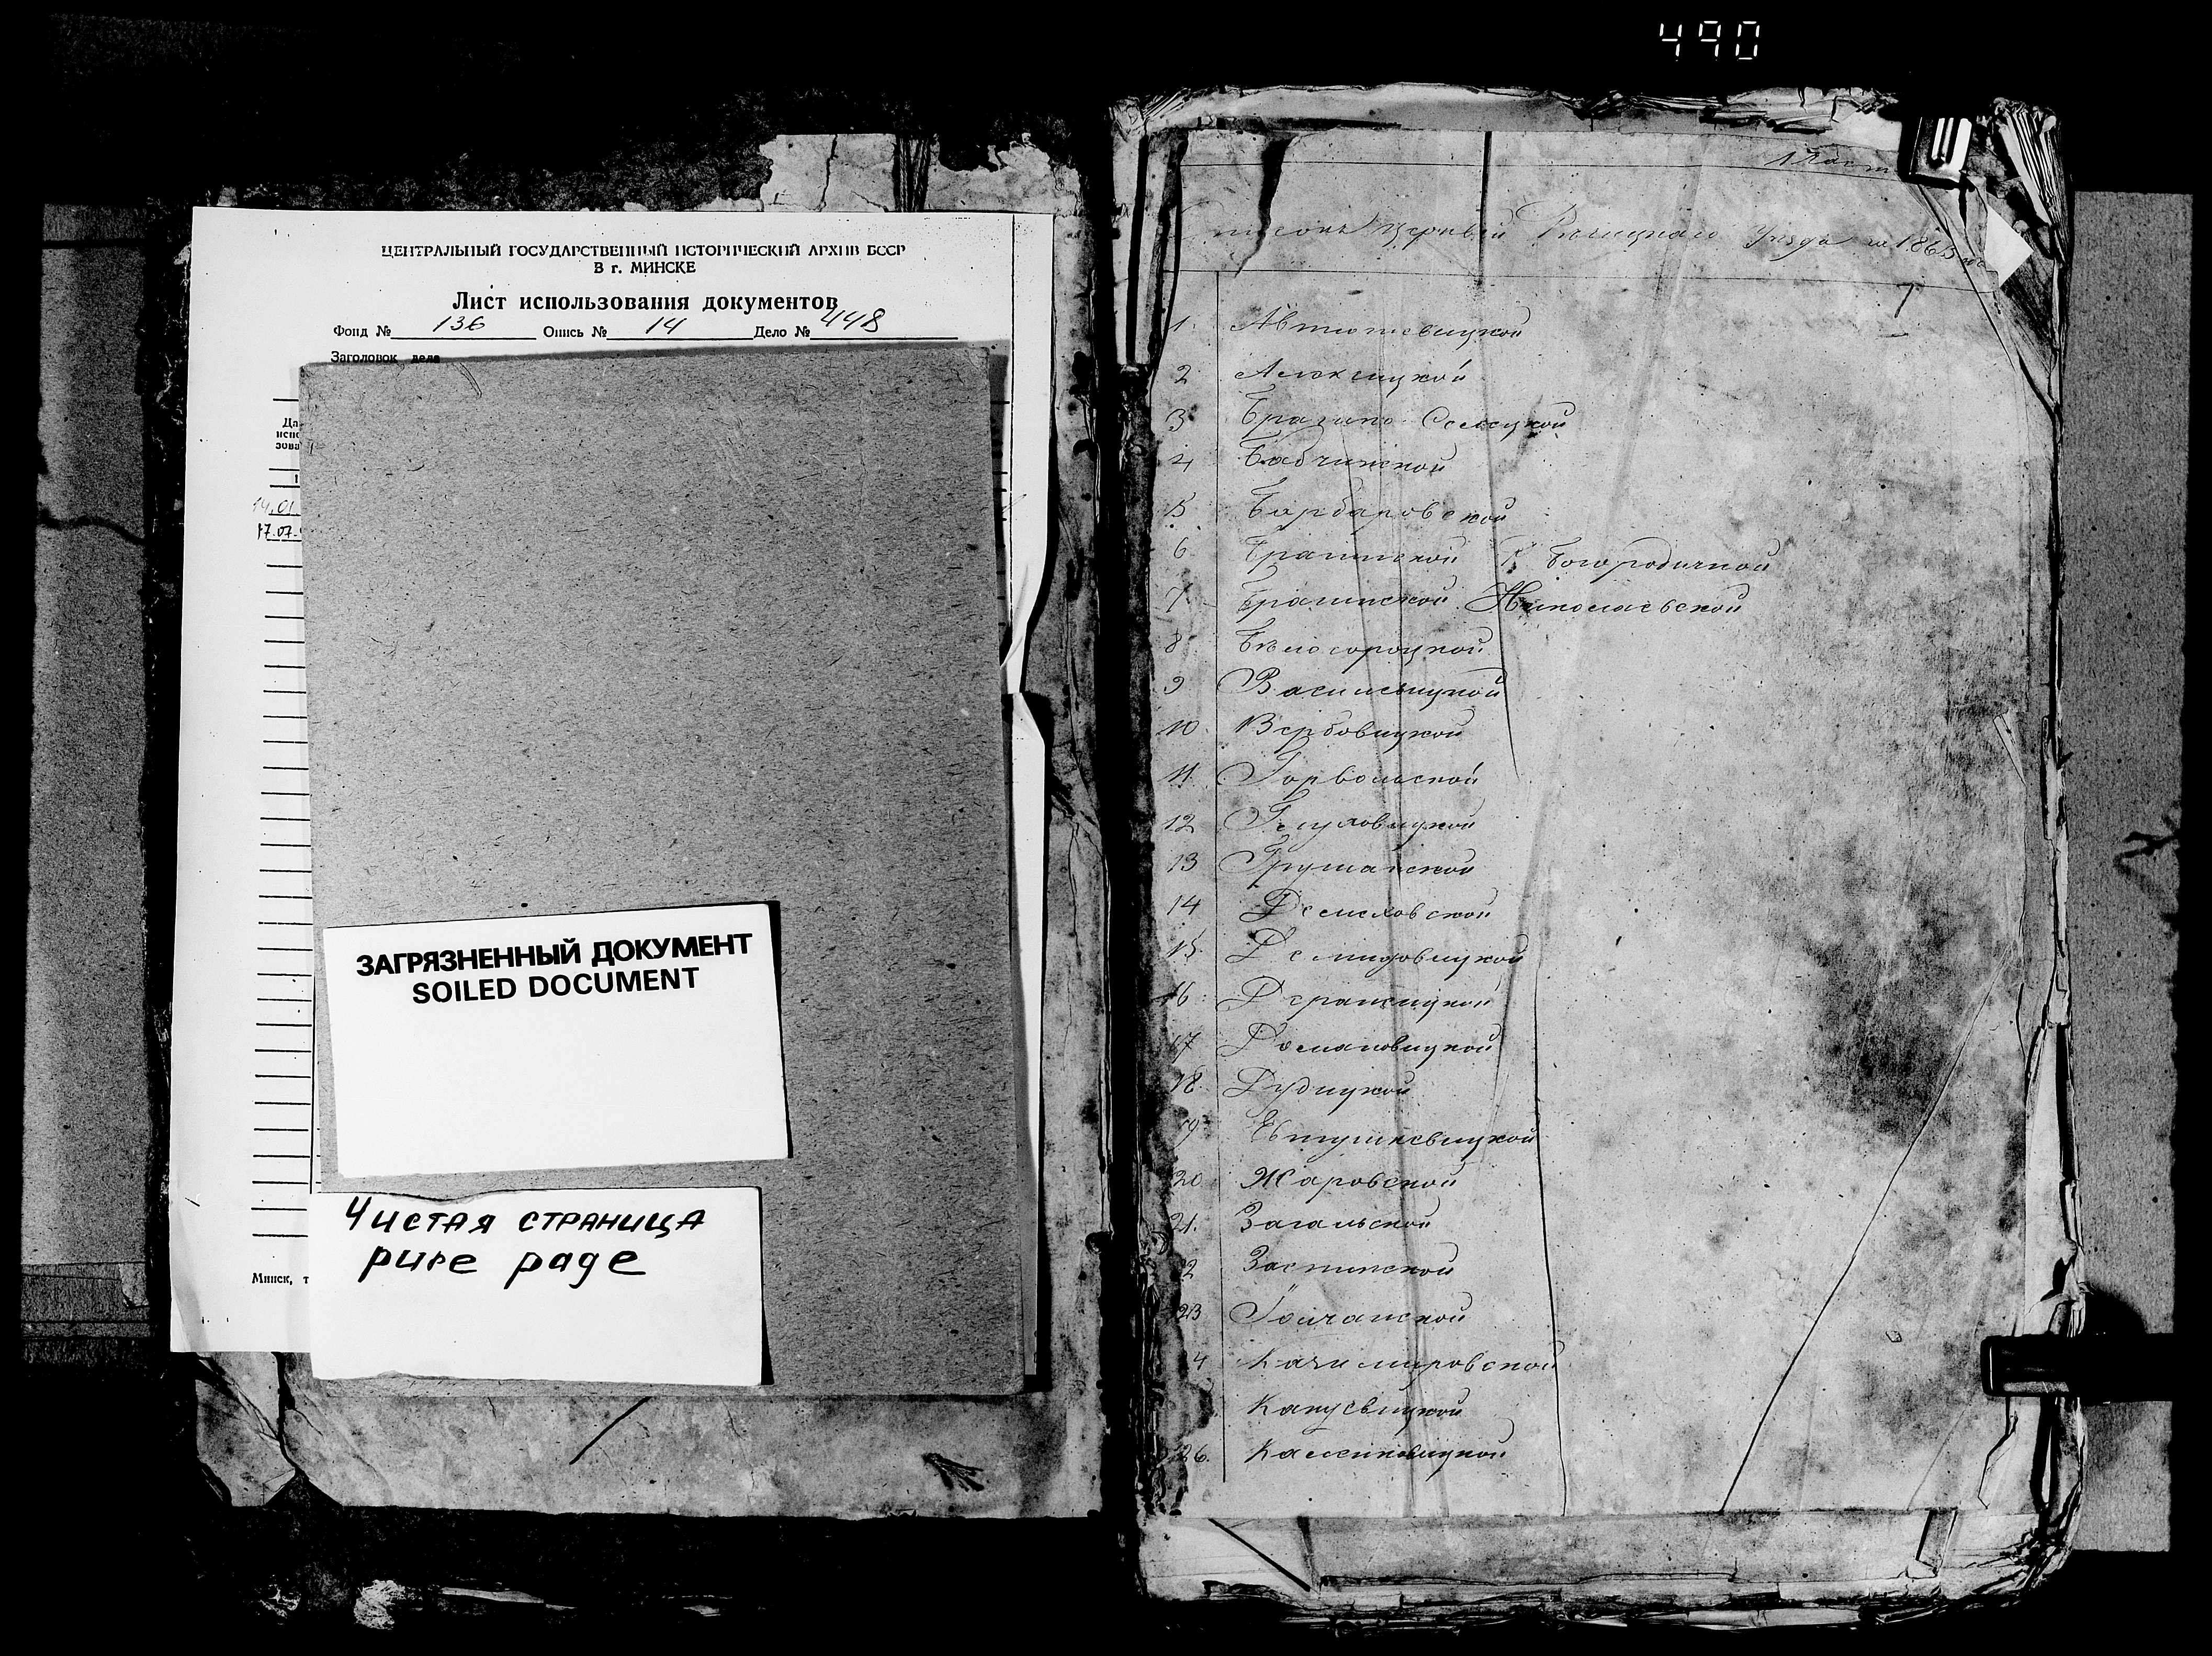 490
ЦЕНТРАЛЬНЫЙ ГОСУДАРСТВЕННЫЙ ИСТОРИЧЕСКИЙ АРХИВ БССР
В г. МИНСКЕ
Лист использования документов
Фонд № 136 Опись № 14 Дело № 448
Заголовок дела
Да
испо
зова
1
14.01
17.07.
ЗАГРЯЗНЕННЫЙ ДОКУМЕНТ
SOILED DOCUMENT
Чистая страница
pure page
Минск, т
1
Списокъ Церквей Рѣчицкаго Уѣзда
1
1. Автютевицкой
2 Алексицкой
3 Брагино Селецкой
4 Бабчинской
5 Барбаровской
6 Брагинской Р. Богородичной
7 Брагинской Николаевской
8 Бѣлосороцкой
9 Василевицкой
10 Вербовицкой
11 Горвольской
12 Глуховицкой
13 Грушанской
14 Демеховской
15. Демидовицкой
16 Деражицкой
17 Домановицкой
18. Дудицкой
19 Евтушкевицкой
20 Жаровской
21. Загальской
22 Заспинской
23 Іолчанской
4 Казимировской
Капусвицкой
26. Каленковицкой